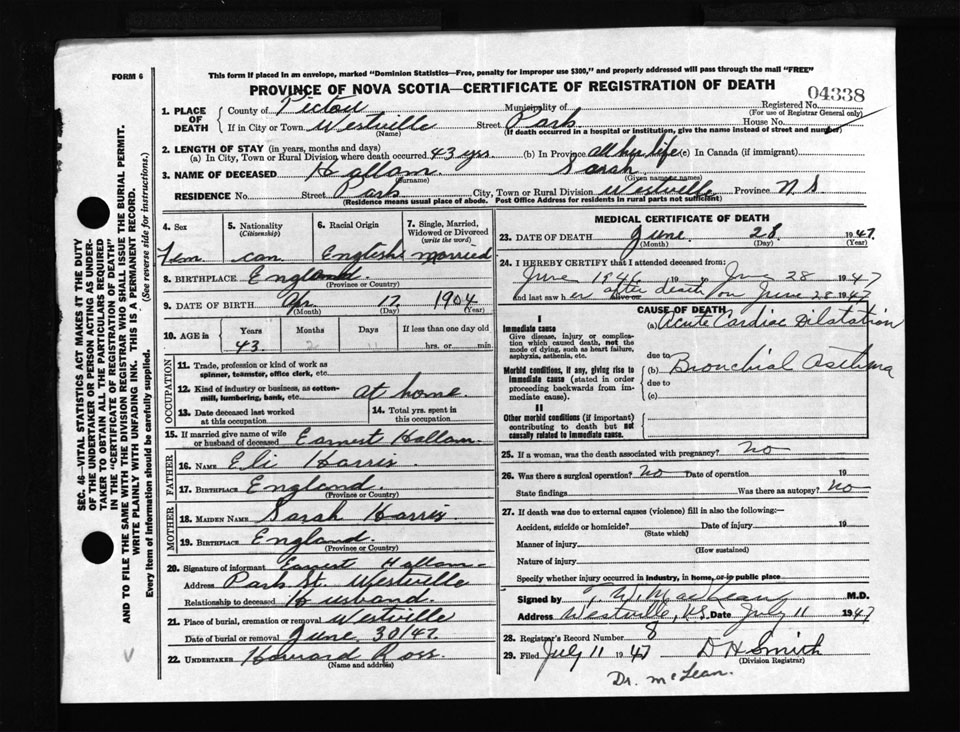 FORM 6
This form if placed in an envelope, marked "Dominion Statistics—Free, penalty for improper use $300," and properly addressed will pass through the mail "FREE"
PROVINCE OF NOVA SCOTIA—CERTIFICATE OF REGISTRATION OF DEATH
04338
1. PLACE OF DEATH
County of Pictou Municipality of Registered No.
(For use of Registrar General only)
If in City or Town Westville Street Park House No.
(Name) (If death occurred in a hospital or institution, give the name instead of street and number)
2. LENGTH OF STAY (in years, months and days)
(a) In City, Town or Rural Division where death occurred 43 yrs. (b) In Province all his life (c) In Canada (if immigrant)
3. NAME OF DECEASED Hallam. Sarah
(Surname) (Given names)
RESIDENCE No. Street Park City, Town or Rural Division Westville Province N S
(Residence means usual place of abode. Post Office Address for residents in rural parts not sufficient)
4. Sex Fem
5. Nationality (Citizenship) can.
6. Racial Origin English
7. Single, Married, Widowed or Divorced (write the word) married
8. BIRTHPLACE England.
(Province or Country)
9. DATE OF BIRTH Apr. 17 1904
(Month) (Day) (Year)
10. AGE in Years Months Days If less than one day old
43 hrs. or min.
OCCUPATION
11. Trade, profession or kind of work as spinner, teamster, office clerk, etc.
12. Kind of industry or business, as cotton-mill, lumbering, bank, etc. at home.
13. Date deceased last worked at this occupation
14. Total yrs. spent in this occupation
15. If married give name of wife or husband of deceased Earnest Hallam.
FATHER
16. NAME Eli Harris.
17. BIRTHPLACE England
(Province or Country)
MOTHER
18. MAIDEN NAME Sarah Harris.
19. BIRTHPLACE England.
(Province or Country)
20. Signature of informant Earnest Hallam
Address Park St. Westville
Relationship to deceased Husband.
21. Place of burial, cremation or removal Westville
Date of burial or removal June 30/47.
22. UNDERTAKER Howard Ross.
(Name and address)
MEDICAL CERTIFICATE OF DEATH
23. DATE OF DEATH June 28 1947
(Month) (Day) (Year)
24. I HEREBY CERTIFY that I attended deceased from:
June 1946 19 to June 28 1947
and last saw her alive on after death on June 28 1947
CAUSE OF DEATH
I
Immediate cause
Give disease, injury or complication which caused death, not the mode of dying, such as heart failure, asphyxia, asthenia, etc.
(a) Acute Cardiac Dilatation
due to
Morbid conditions, if any, giving rise to immediate cause (stated in order proceeding backwards from immediate cause).
(b) Bronchial Asthma
due to
(c)
II
Other morbid conditions (if important) contributing to death but not causally related to immediate cause.
25. If a woman, was the death associated with pregnancy? No
26. Was there a surgical operation? No Date of operation 19
State findings Was there an autopsy? No
27. If death was due to external causes (violence) fill in also the following:—
Accident, suicide or homicide? Date of injury 19
(State which)
Manner of injury
(How sustained)
Nature of injury
Specify whether injury occurred in industry, in home, or in public place
Signed by M.D.
Address Westville, N.S. Date July 11 1947
28. Registrar's Record Number 8
29. Filed July 11 1947 D H Smith
(Division Registrar)
Dr. McLean.
SEC. 46—VITAL STATISTICS ACT MAKES IT THE DUTY
OF THE UNDERTAKER OR PERSON ACTING AS UNDER-
TAKER TO OBTAIN ALL THE PARTICULARS REQUIRED
IN THE "CERTIFICATE OF REGISTRATION OF DEATH"
AND TO FILE THE SAME WITH THE DIVISION REGISTRAR WHO SHALL ISSUE THE BURIAL PERMIT.
WRITE PLAINLY WITH UNFADING INK. THIS IS A PERMANENT RECORD.
Every item of information should be carefully supplied. (See reverse side for instructions.)